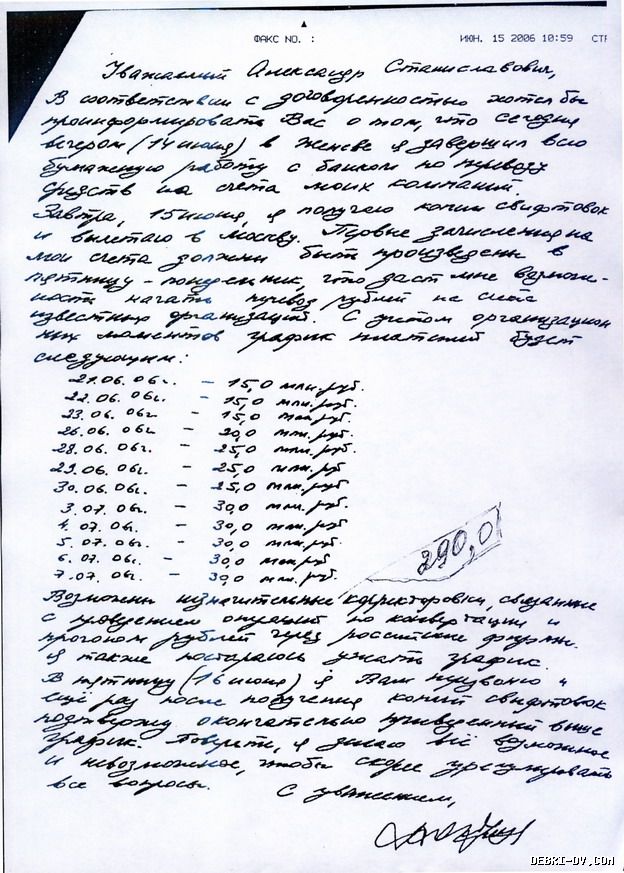 ФАКС NO. : ИЮН. 15 2006 10:59 СТР
Уважаемый Александр Станиславович,
В соответствии с договоренностью хотел бы
проинформировать Вас о том, что сегодня
вечером (14 июня) в Женеве я завершил всю
бумажную работу с банком по переводу
средств на счета моих компаний.
Завтра, 15 июня, я получаю копии свифтовок
и вылетаю в Москву. Первые зачисления на
мои счета должны быть произведены в
пятницу - понедельник, что даст мне возмож-
ность начать перевод рублей на счета
известных организаций. С учётом организацион
ных моментов график платежей будет
следующим:
21.06.06г. - 15,0 млн. руб.
22.06.06г. - 15,0 млн. руб.
23.06.06г - 15,0 млн. руб.
26.06.06г - 20,0 млн. руб.
28.06.06г. - 25,0 млн. руб.
29.06.06г. - 25,0 млн. руб
30.06.06г. - 25,0 млн. руб.
3.07.06г. - 30,0 млн. руб.
4.07.06г. - 30,0 млн. руб
5.07.06г. - 30,0 млн. руб.
6.07.06г. - 30,0 млн. руб.
7.07.06г. - 30,0 млн. руб.
290,0
Возможны незначительные корректировки, связанные
с проведением операций по конвертации и
прогоном рублей через российские фирмы.
Я также постараюсь ужать график.
В пятницу (16 июня) я Вам позвоню и
ещё раз после получения копий свифтовок
подтвержу окончательно приведенный выше
график. Поверьте, я делаю всё возможное
и невозможное, чтобы скорее урегулировать
все вопросы. С уважением,
DEBRI-DV.COM